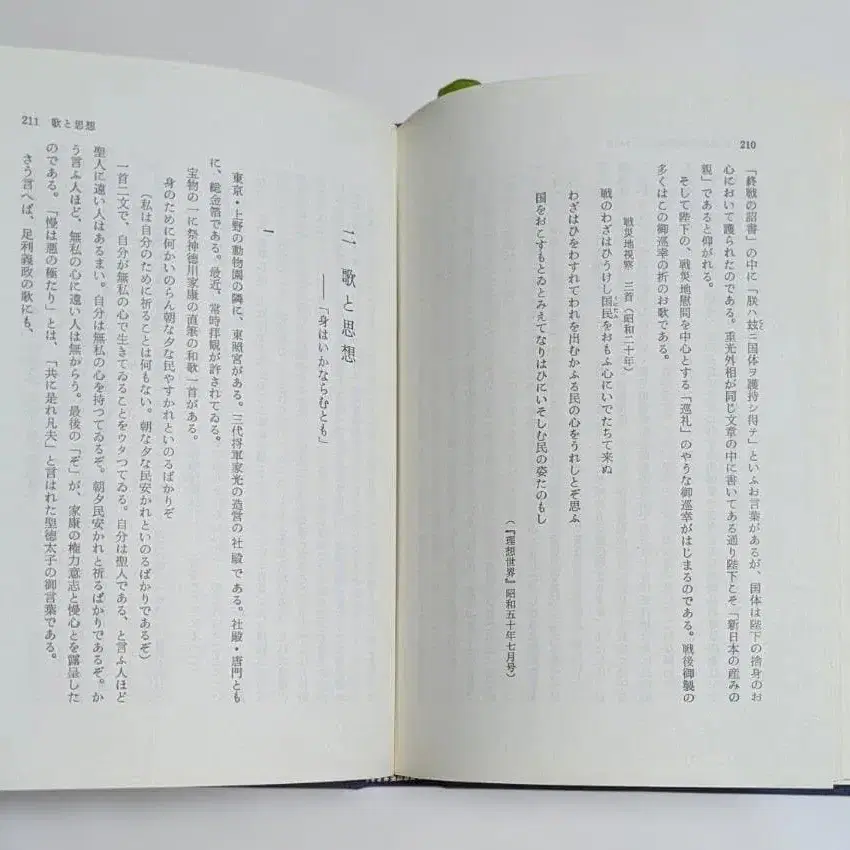 210
「終戦の詔書」の中に「朕ハ玆ニ国体ヲ護持シ得テ」といふお言葉があるが、国体は陛下の捨身のお
心において護られたのである。重光外相が同じ文章の中に書いてある通り陛下こそ「新日本の産みの
親」であると仰がれる。
そして陛下の、戦災地慰問を中心とする「巡礼」のやうな御巡幸がはじまるのである。戦後御製の
多くはこの御巡幸の祈のお歌である。
戦災地視察 三首（昭和二十年）
戦のわざはひうけし国民をおもふ心にいでたちて来ぬ
わざはひをわすれてわれを出むかふる民の心をうれしとぞ思ふ
国をおこすもとゐとみえてなりはひにいそしむ民の姿たのもし
（『理想世界』昭和五十年七月号）
211 歌と思想
二 歌と思想
――「身はいかならむとも」
一
東京・上野の動物園の隣に、東照宮がある。三代将軍家光の造営の社殿である。社殿・唐門とも
に、総金箔である。最近、常時拝観が許されてゐる。
宝物の一に祭神徳川家康の直筆の和歌一首がある。
身のために何かいのらん朝な夕な民やすかれといのるばかりぞ
（私は自分のために祈ることは何もない。朝な夕な民安かれといのるばかりであるぞ）
一首二文で、自分が無私の心で生きてゐることをウタつてゐる。自分は聖人である、と言ふ人ほど
聖人に遠い人はあるまい。自分は無私の心を持つてゐるぞ。朝夕民安かれと祈るばかりであるぞ。か
う言ふ人ほど、無私の心に遠い人は無からう。最後の「ぞ」が、家康の権力意志と慢心とを露呈した
のである。「慢は悪の極たり」とは、「共に是れ凡夫」と言はれた聖徳太子の御言葉である。
さう言へば、足利義政の歌にも、